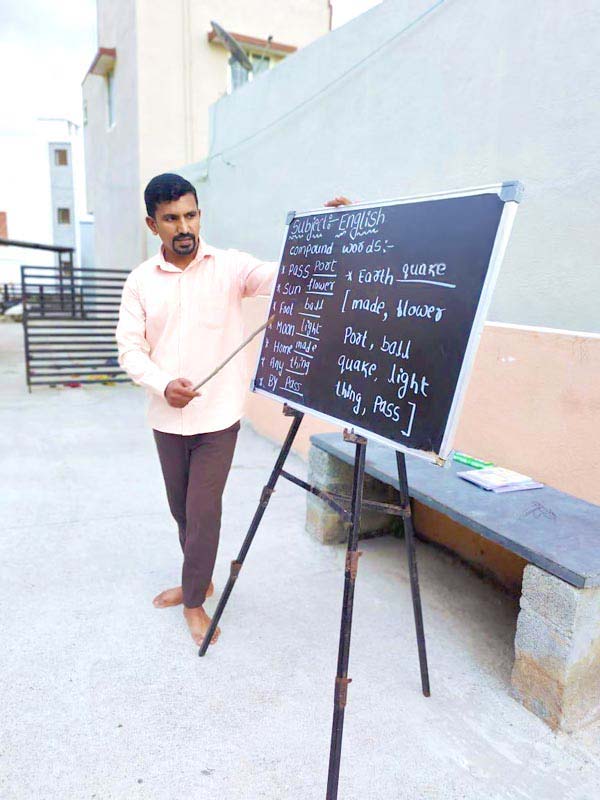 Subject:- English
compound words:-
* Pass Port
* Sun flower
* Foot ball
* Moon light
* Home made
* Any thing
* By Pass
* Earth quake
[ made, flower
Port, ball
quake, light
thing, Pass ]